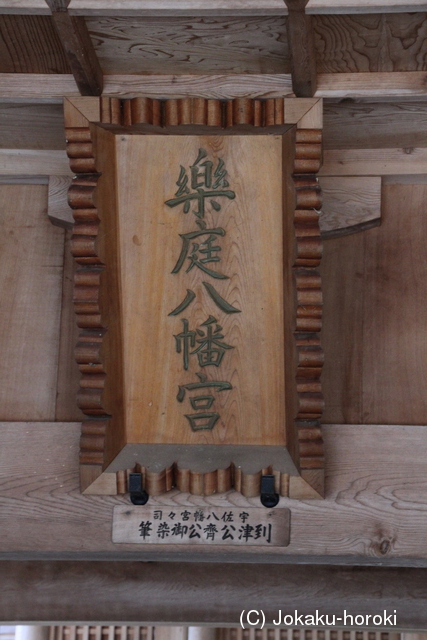 樂庭八幡宮
宇佐八幡宮々司
到津公齊公御染筆
(C) Jokaku-horoki